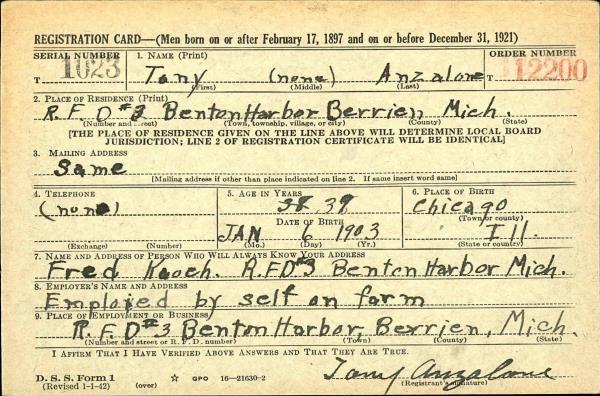 REGISTRATION CARD—(Men born on or after February 17, 1897 and on or before December 31, 1921)
SERIAL NUMBER 1. NAME (Print) ORDER NUMBER
T 1023 Tony (none) Anzalone T 12200
(First) (Middle) (Last)
2. PLACE OF RESIDENCE (Print)
R.F.D #3 Benton Harbor Berrien Mich.
(Number and street) (Town, township, village, or city) (County) (State)
[THE PLACE OF RESIDENCE GIVEN ON THE LINE ABOVE WILL DETERMINE LOCAL BOARD
JURISDICTION; LINE 2 OF REGISTRATION CERTIFICATE WILL BE IDENTICAL]
3. MAILING ADDRESS
Same
[Mailing address if other than place indicated on line 2. If same insert word same]
4. TELEPHONE 5. AGE IN YEARS 6. PLACE OF BIRTH
(none) 38 Chicago
DATE OF BIRTH (Town or county)
JAN 6 1903 Ill.
(Exchange) (Number) (Mo.) (Day) (Yr.) (State or country)
7. NAME AND ADDRESS OF PERSON WHO WILL ALWAYS KNOW YOUR ADDRESS
Fred R.F.D#3 Benton Harbor Mich.
8. EMPLOYER'S NAME AND ADDRESS
Employed by self on farm
9. PLACE OF EMPLOYMENT OR BUSINESS
R.F.D#3 Benton Harbor, Berrien, Mich.
(Number and street or R. F. D. number) (Town) (County) (State)
I AFFIRM THAT I HAVE VERIFIED ABOVE ANSWERS AND THAT THEY ARE TRUE.
Tony Anzalone
D. S. S. Form 1 (Registrant's signature)
(Revised 1-1-42) (over) ☆ GPO 16—21630-2